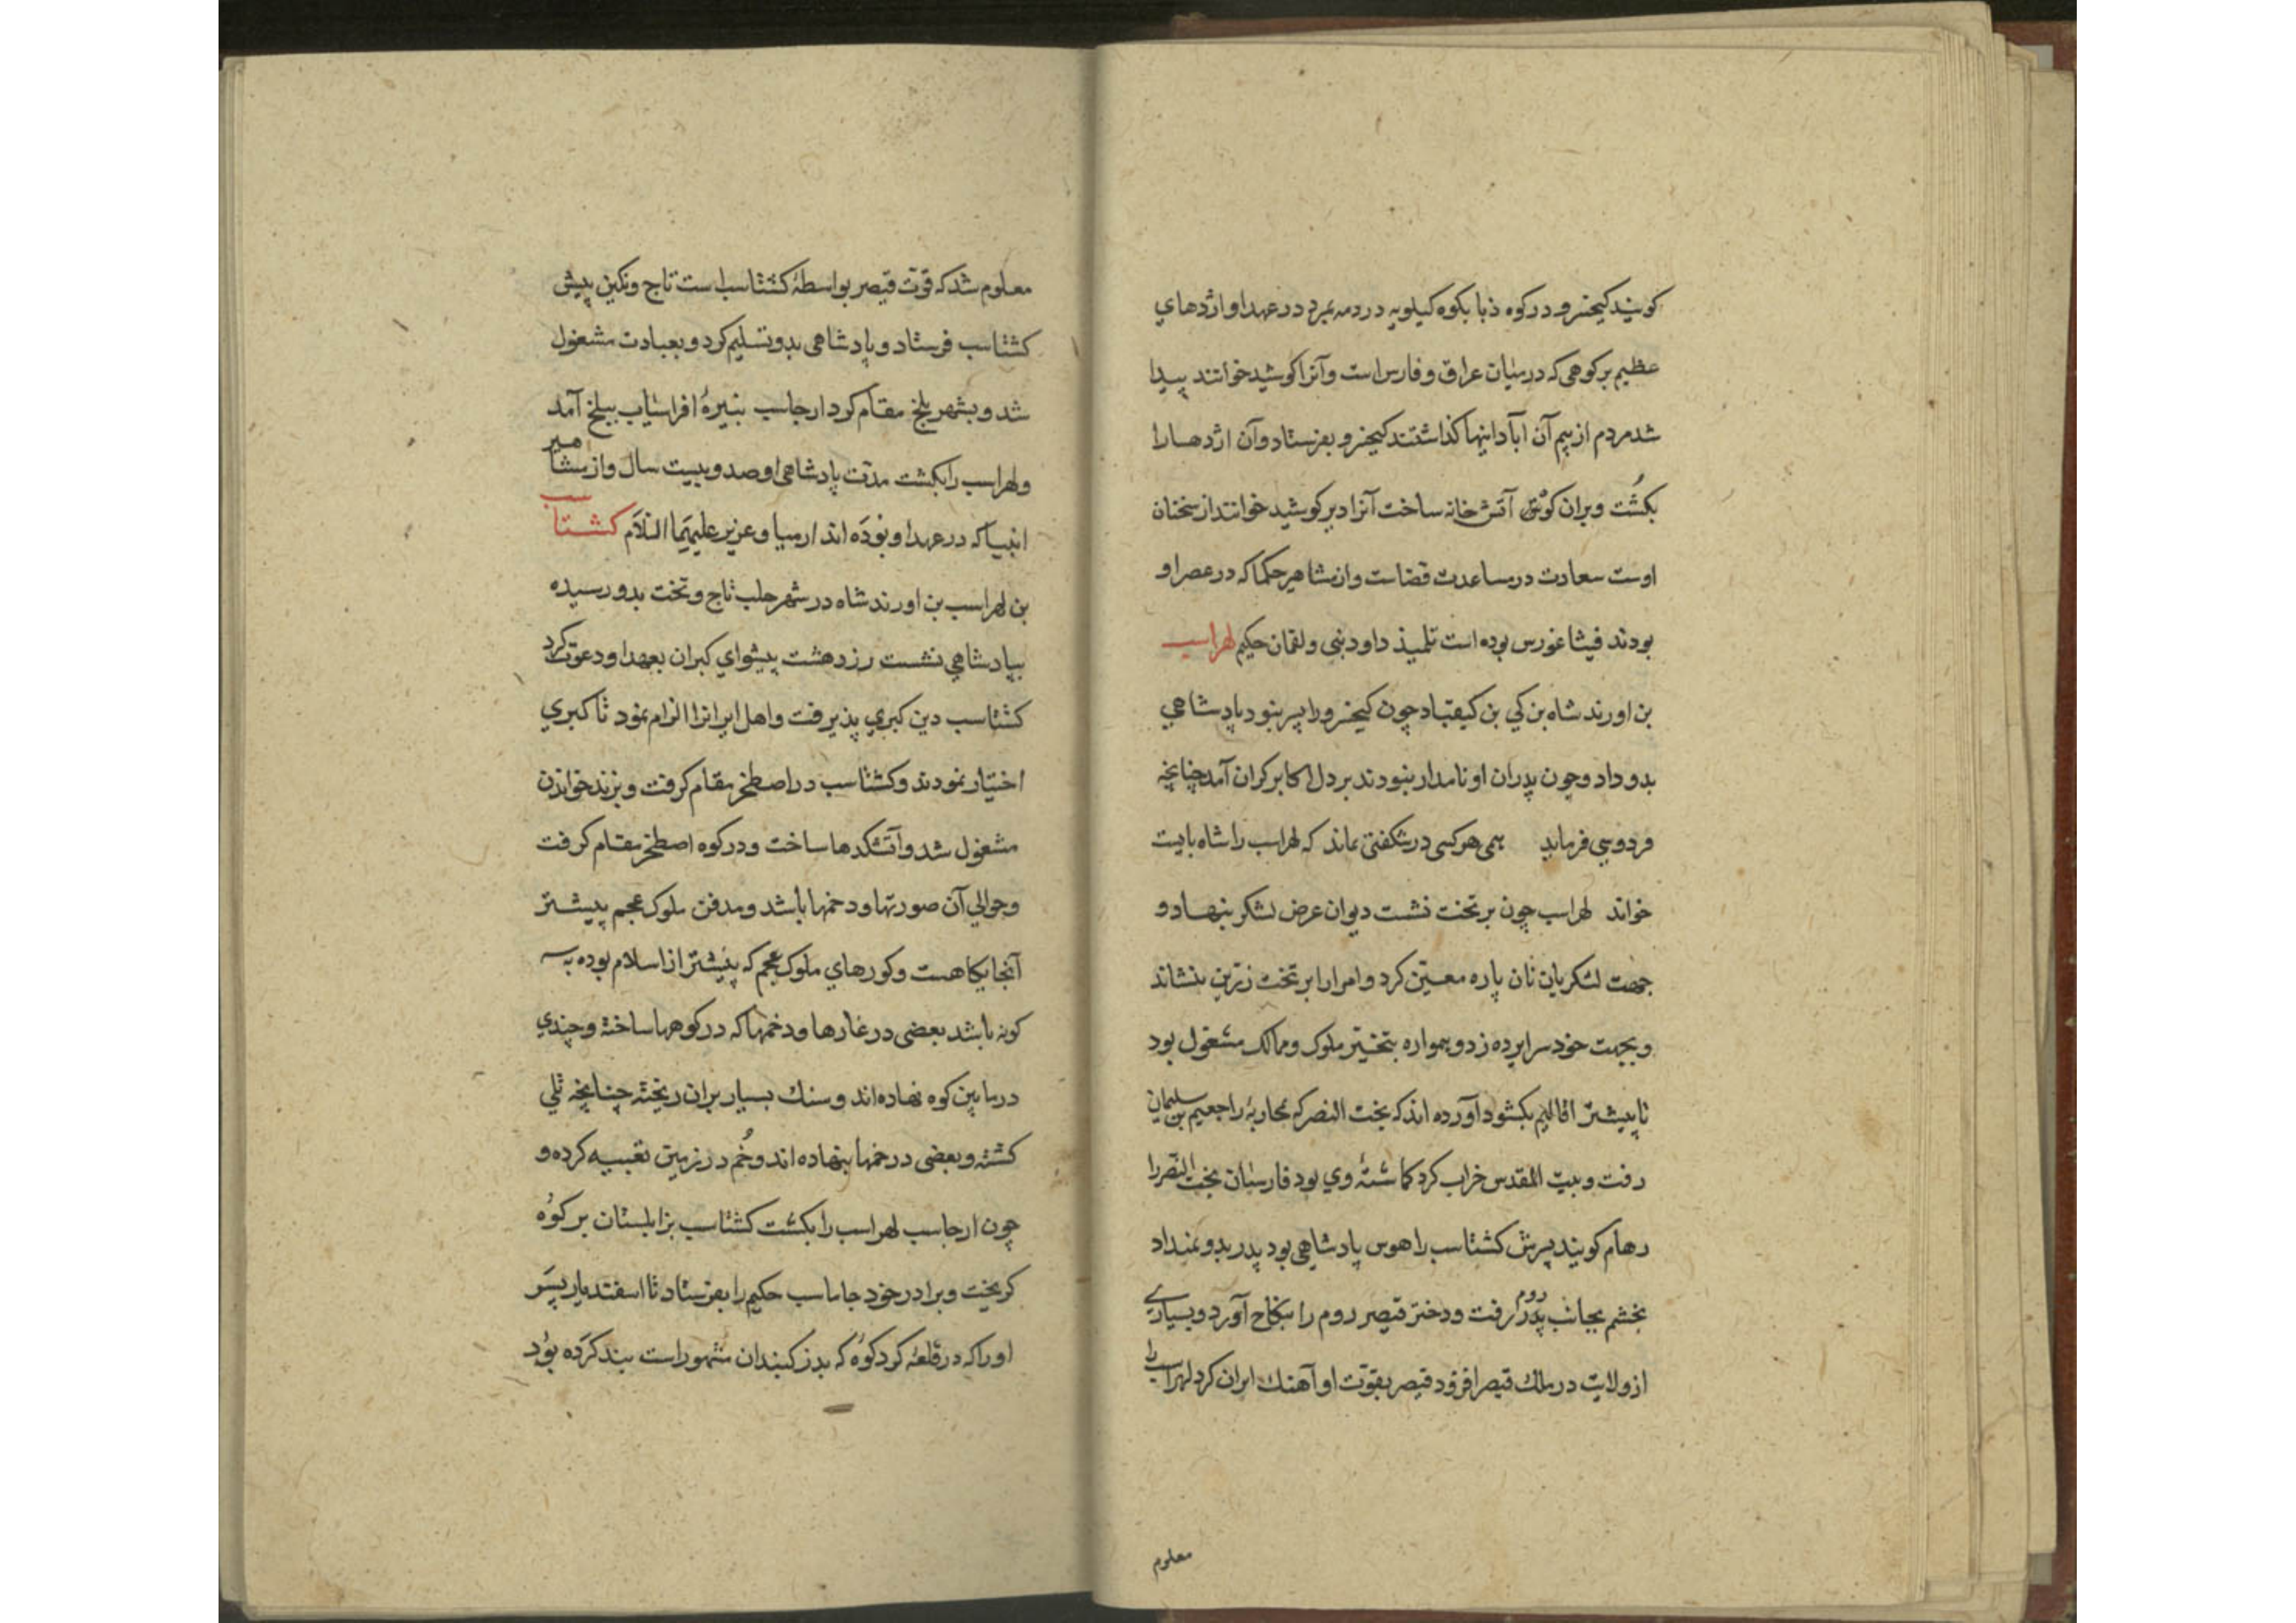 کویند کیخسرو در کوه دنا بکوه کیلویه در دمه بمرد در عهد او اژدهای
عظیم بر کوهی که در میان عراق و فارس است و آنرا کوشید خوانند پیدا
شد مردم از بیم آن آبادانیها کذاشتند کیخسرو بفرستاد و آن اژدها را
بکشت و بران کوه آتش خانه ساخت آنرا دیر کوشید خوانند از سخنان
اوست سعادت در مساعدت قضاست و از مشاهیر حکما که در عصر او
بودند فیثاغورس بوده است تلمیذ داود نبی و لقمان حکیم لهراسب
بن اورند شاه بن کی بن کیقباد چون کیخسرو را پسر نبود پادشاهی
بدو داد و چون پدران او نامدار نبودند بر دل اکابر کران آمد چنانچه
فردوسی فرماید همی هر کسی در شکفتی بماند که لهراسب را شاه بایست
خواند لهراسب چون بر تخت نشست دیوان عرض لشکر بنهاد و
جهت لشکریان نان پاره معین کرد و امرا را بر تخت زرین بنشاند
و بجهت خود سراپرده زد و همواره بتسخیر ملوک و ممالک مشغول بود
تا بیشتر اقالیم بکشود آورده اند که بخت النصر که بمحاربهٔ راجعیم بن سلیمان
رفت و بیت المقدس خراب کرد کماشتهٔ وی بود فارسیان بخت النصر را
رهام کویند پسرش کشتاسب را هوس پادشاهی بود پدر بدو نمیداد
بخشم بجانب روم رفت و دختر قیصر روم را بنکاح آورد و بسیاری
از ولایت در ملک قیصر افزود قیصر بقوت او آهنک ایران کرد لهراسب را
معلوم
معلوم شد که قوت قیصر بواسطهٔ کشتاسب است تاج و نکین پیش
کشتاسب فرستاد و پادشاهی بدو تسلیم کرد و بعبادت مشغول
شد و بشهر بلخ مقام کرد ارجاسب نبیرهٔ افراسیاب ببلخ آمد
و لهراسب را بکشت مدت پادشاهی او صد و بیست سال و از مشاهیر
انبیا که در عهد او بوده اند ارمیا و عزیر علیهما السلام کشتاسب
بن لهراسب بن اورند شاه در شهر حلب تاج و تخت بدو رسیده
بپادشاهی نشست زردهشت پیشوای کبران بعهد او دعوت کرد
کشتاسب دین کبری پذیرفت و اهل ایرانرا الزام نمود تا کبری
اختیار نمودند و کشتاسب در اصطخر مقام کرفت و بزند خواندن
مشغول شد و آتشکدها ساخت و در کوه اصطخر مقام کرفت
و حوالی آن صورتها و دخمها باشد و مدفن ملوک عجم پیشتر
آنجایکاهست و کورهای ملوک عجم که پیشتر از اسلام بوده به سه
کونه باشد بعضی در غارها و دخمها که در کوهها ساخته و چندی
در مابین کوه نهاده اند و سنک بسیار بران ریخته چنانچه تلی
کشته و بعضی در خمها بنهاده اند و خم در زمین تعبیه کرده و
چون ارجاسب لهراسب را بکشت کشتاسب بزابلستان بر کوه
کریخت و برادر خود جاماسب حکیم را بفرستاد تا اسفندیار پسر
او را که در قلعهٔ کردکوه که بدز کنبدان مشهور است بند کرده بود